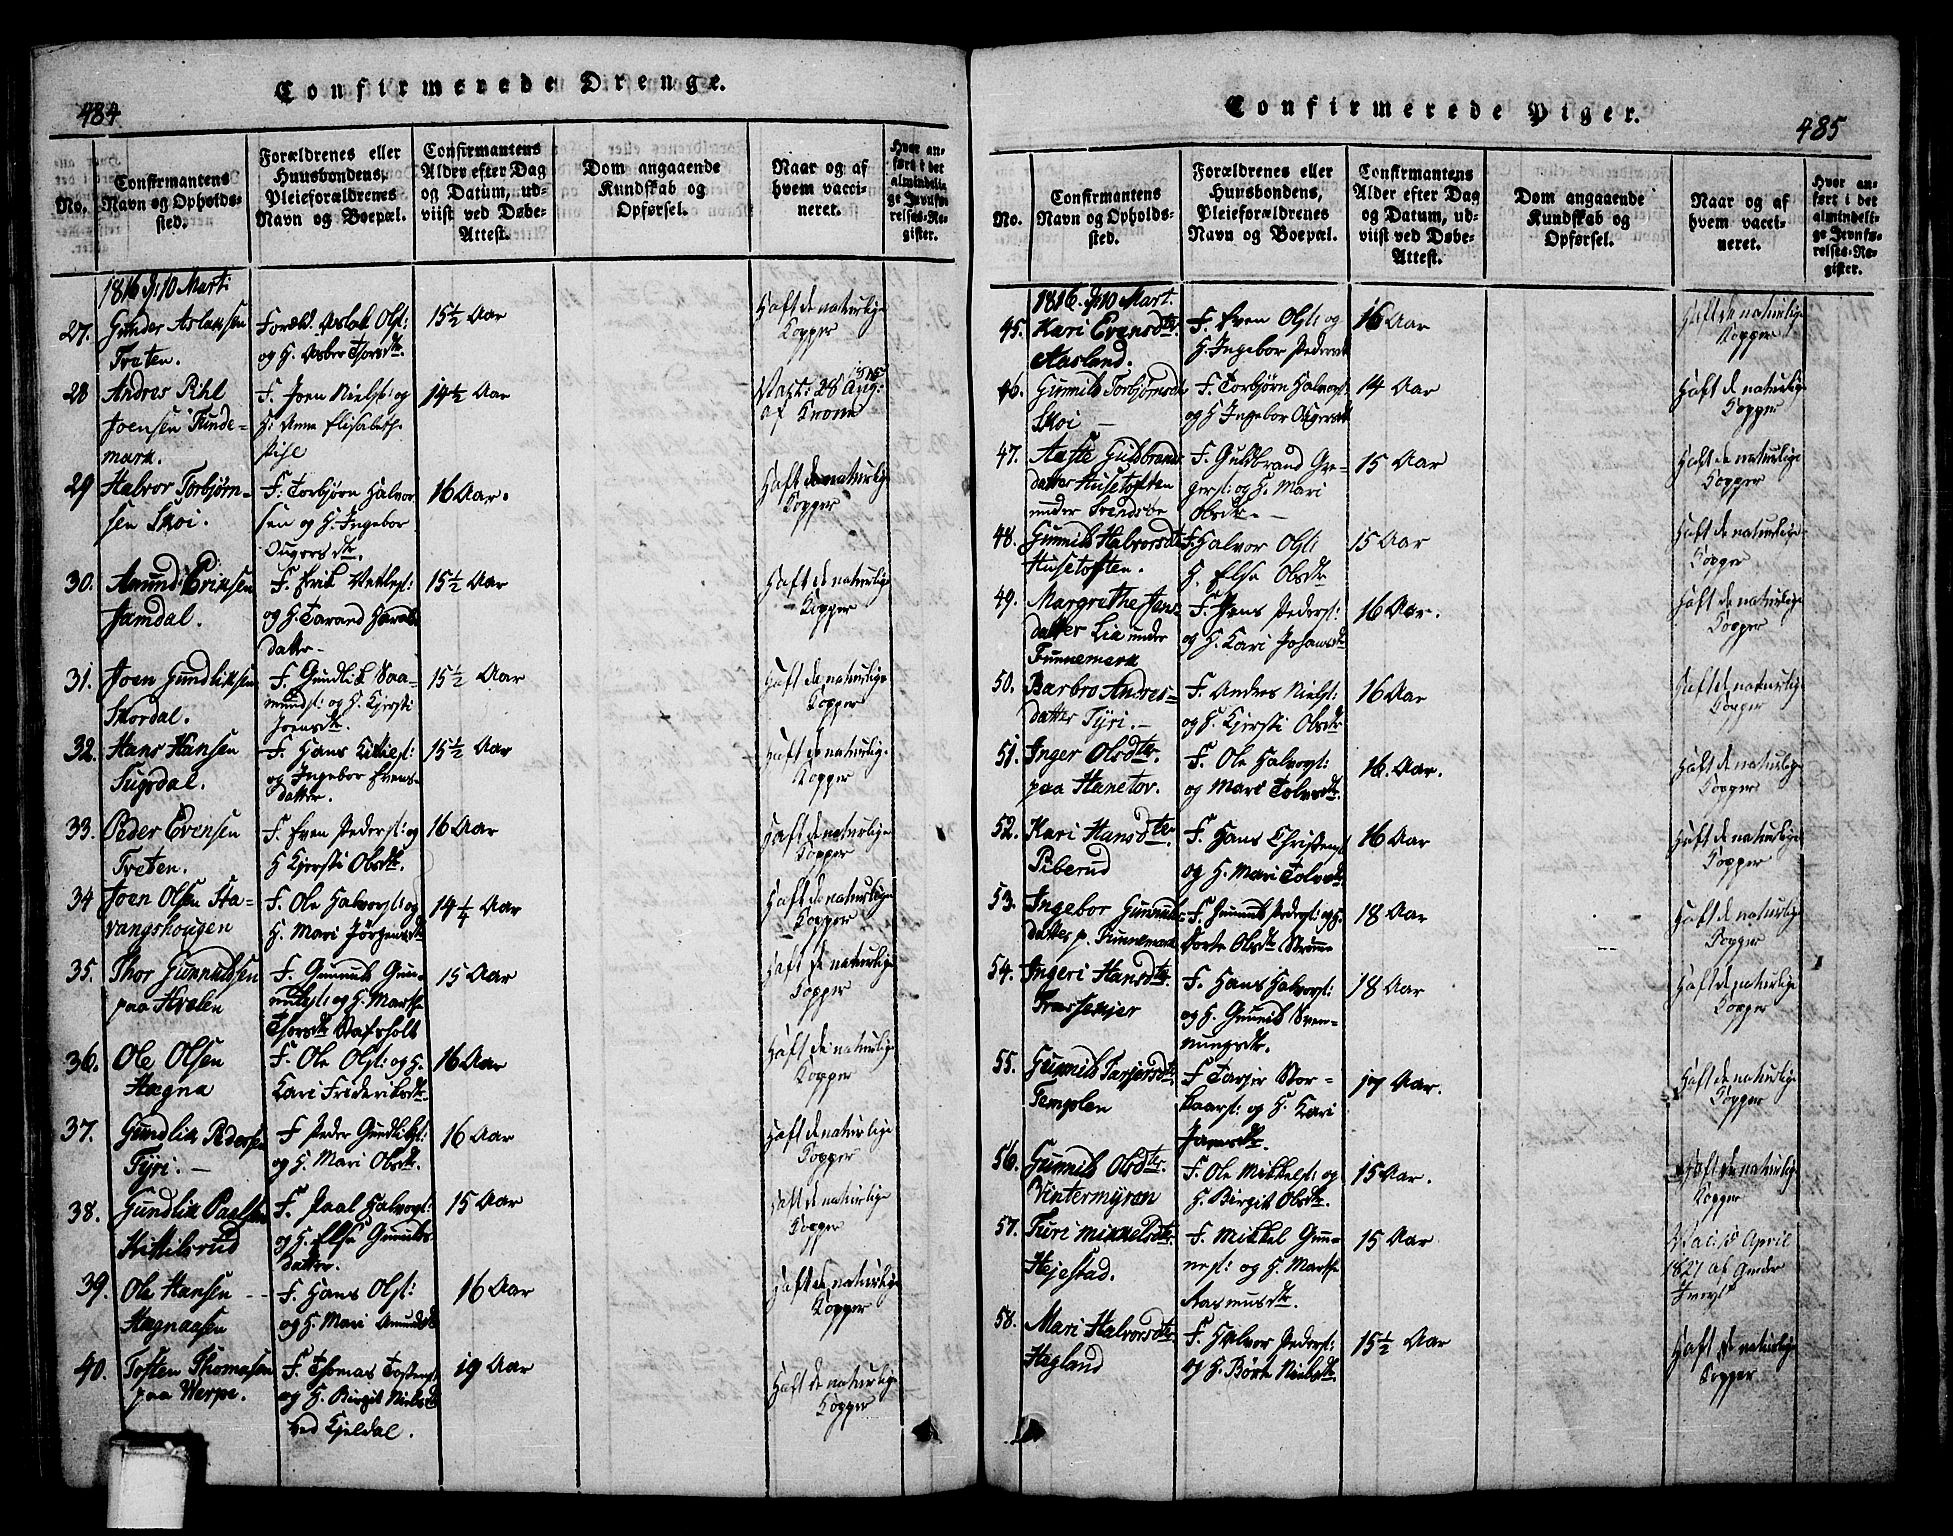 484
Confirmerede Drenge.
No.
Confirmantens
Navn og Opholds-
sted.
Forældrenes eller
Huusbondens,
Pleieforældrenes
Navn og Boepæl.
Confirmantens
Alder efter Dag
og Datum, ud-
viist ved Døbe-
Attest.
Dom angaaende
Kundskab og
Opførsel.
Naar og af
hvem vacci-
neret.
Hvor an-
ført i det
almindeli-
ge Jevnfø-
relses-Re-
gister.
1816 d. 10 Marti
27. Gunder Aslaksen
Treten.
Foræld. Aslak Ols:
og H. Asber Thorsdtr.
15½ Aar
Haft de naturlige
Kopper
28 Andres Pihl
Joensen Funde-
mark.
F. Joen Niels: og
H: Anne Elisabeth
Pihl
14½ Aar
28 Aug: 1815
af Krone
29 Halvor Torbjørn-
sen Skoi.
F. Torbjørn Halvor
sen og H. Ingebor
dtr.
16 Aar.
Haft de naturlige
Kopper
30. Amund Eriksen
Jamdal.
F. Erik Vetles:
og H. Tarand
datter
15½ Aar
Haft de naturlige
Kopper
31. Joen Gundliksen
Skordal.
F. Gundlik Saa-
munds: og H. Kjersti
Joensdtr.
15½ Aar
Haft de naturlige
Kopper
32. Hans Hansen
F. Hans
og Ingebor Evens-
datter.
15½ Aar
Haft de naturlig-
Kopper
33. Peder Evensen
Treten.
F. Even Peders: og
H Kjersti Olsdtr.
16 Aar
Haft de naturlige
Kopper
34 Joen Olsen Sta-
vangshougen
F. Ole Halvors: og
H. Mari Jørgensdtr
14¼ Aar
Haft de naturlige
Kopper
35. Thor Gunnulfsen
paa Hvalen
F. Gunnulf Gun-
nulfs: og H. Marthe
Thorsdtr Vafsholt
15 Aar
Haft de naturlige
Kopper
36. Ole Olsen
Hægna
F. Ole Ols: og H.
Kari Frideriksdtr.
16 Aar
Haft de naturlige
Kopper
37. Gundlik Pedersen
Tyri.
F Peder Gundliks:
og H. Mari Olsdtr.
16 Aar
Haft de naturlige
Kopper
38. Gundlik Paalsen
Kittilsrud
F. Paal Halvors:
og H. Else Gunnulfs
datter.
15 Aar
Haft de naturlige
Kopper
39. Ole Hansen
Hægnaasen
F. Hans Ols:
og H. Mari Amundsdtr
16 Aar
Haft de naturlige
Kopper
40. Tosten Thomasen
paa Werpe.
F. Thomas Tostens:
og H. Birgit Nielsdtr
ved Kjeldal.
19 Aar
Haft de naturlige
Kopper
Confirmerede Piger.
485
No.
Confirmantens
Navn og Opholds-
sted.
Forældrenes eller
Huusbondens,
Pleieforældrenes
Navn og Boepæl.
Confirmantens
Alder efter Dag
og Datum, ud-
viist ved Døbe-
Attest.
Dom angaaende
Kundskab og
Opførsel.
Naar og af
hvem vacci-
neret.
Hvor an-
ført i det
almindeli-
ge Jevnfø-
relses-Re-
gister.
1816. d. 10 Mart.
45. Kari Evensdtr
Aasland.
F. Even Ols: og
H. Ingebor Pedersdtr
16 Aar
Haft de naturlige
Kopper
46. Gunnild Torbjørnsdtr
Skoi
F. Torbjørn Halvors:
og H Ingebor
14 Aar
Haft de naturlige
Kopper
47. Aaste Guldbrands
datter Husetoften
under Svendsøe
F. Guldbrand Gre-
gers: og H. Mari
Olsdtr.
15 Aar
Haft de naturlige
Kopper
48. Gunnild Halvorsdtr
Husetoften.
F. Halvor Ols:
H. Else Olsdtr
15 Aar
Haft de naturlige
Kopper
49. Margrethe Jens
datter Lia under
Funnemark
F. Jens Peders:
og H. Kari Johansdtr
16 Aar.
Haft de naturlige
Kopper
50. Barbro Andres-
datter Tyri.
F. Andres Niels:
og H. Kjersti Olsdtr
16 Aar
Haft de naturlig
Kopper
51. Inger Olsdtr.
paa Hanetov.
F. Ole Halvors:
og Mari Tolvsdtr.
16. Aar.
Haft de naturlige
Kopper
52. Kari Hansdtr
Piberud
F. Hans Christens
og H. Mari Tolvsdtr
16 Aar
Haft de naturlige
Kopper
53. Ingebor Gunnulfs-
datter p. Funnemark
F. Gunnulf Peders: og H.
Dorte Olsdtr
18 Aar
Haft de naturlige
Kopper
54. Ingeri Hansdtr
F. Hans Halvors:
og H. Gunnild Sven-
nungsdtr.
18 Aar
Haft de naturlige
Kopper
55. Gunnild Tarjersdtr
Templen
F Tarjer Stor-
kaars: og H. Kari
Jamsdtr.
17 Aar.
Haft de naturlige
Kopper
56. Gunnild Olsdtr.
Vintermyran
F. Ole Mikkels: og
H. Birgit Olsdtr.
15 Aar.
Haft de naturlig
Kopper
57. Turi Mikkelsdtr
Hejestad.
F. Mikkel Gun-
nes: og H. Marthe
Aasmundsdtr.
15 Aar
April
1827 af Gunder
58. Mari Halvorsdtr.
Hagland
F. Halvor Peders:
og H. Børte Nielsdtr.
15½ Aar
Haft de naturlige
Kopper